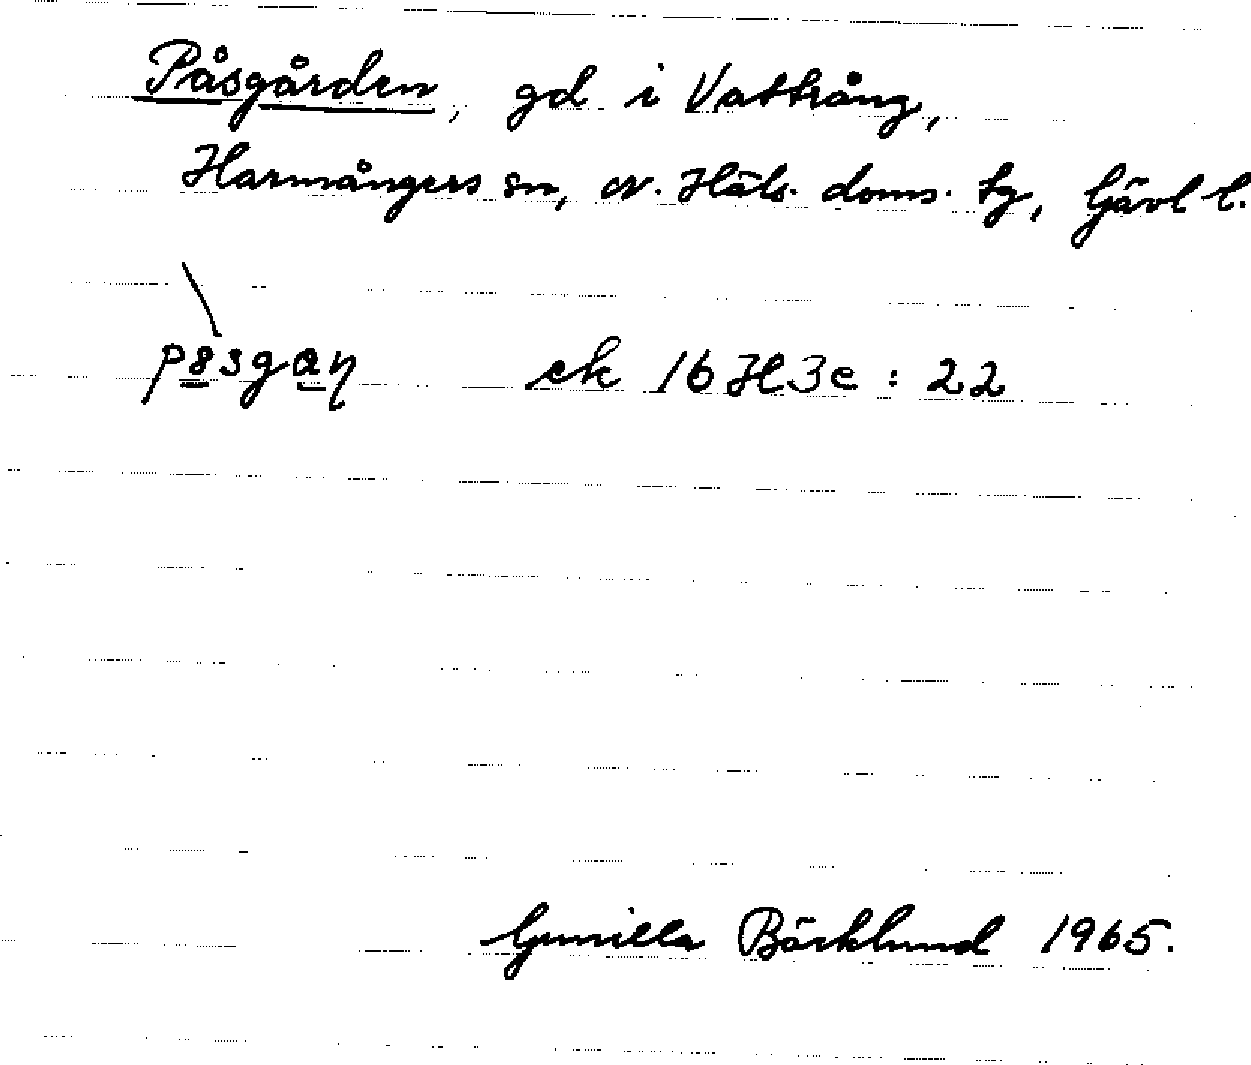 Påsgården, gd i Vattrång,
Harmångers sn, n. Häls. doms. tg, Gävl l.
ek 16H3e : 22
Gunilla Bäcklund 1965.